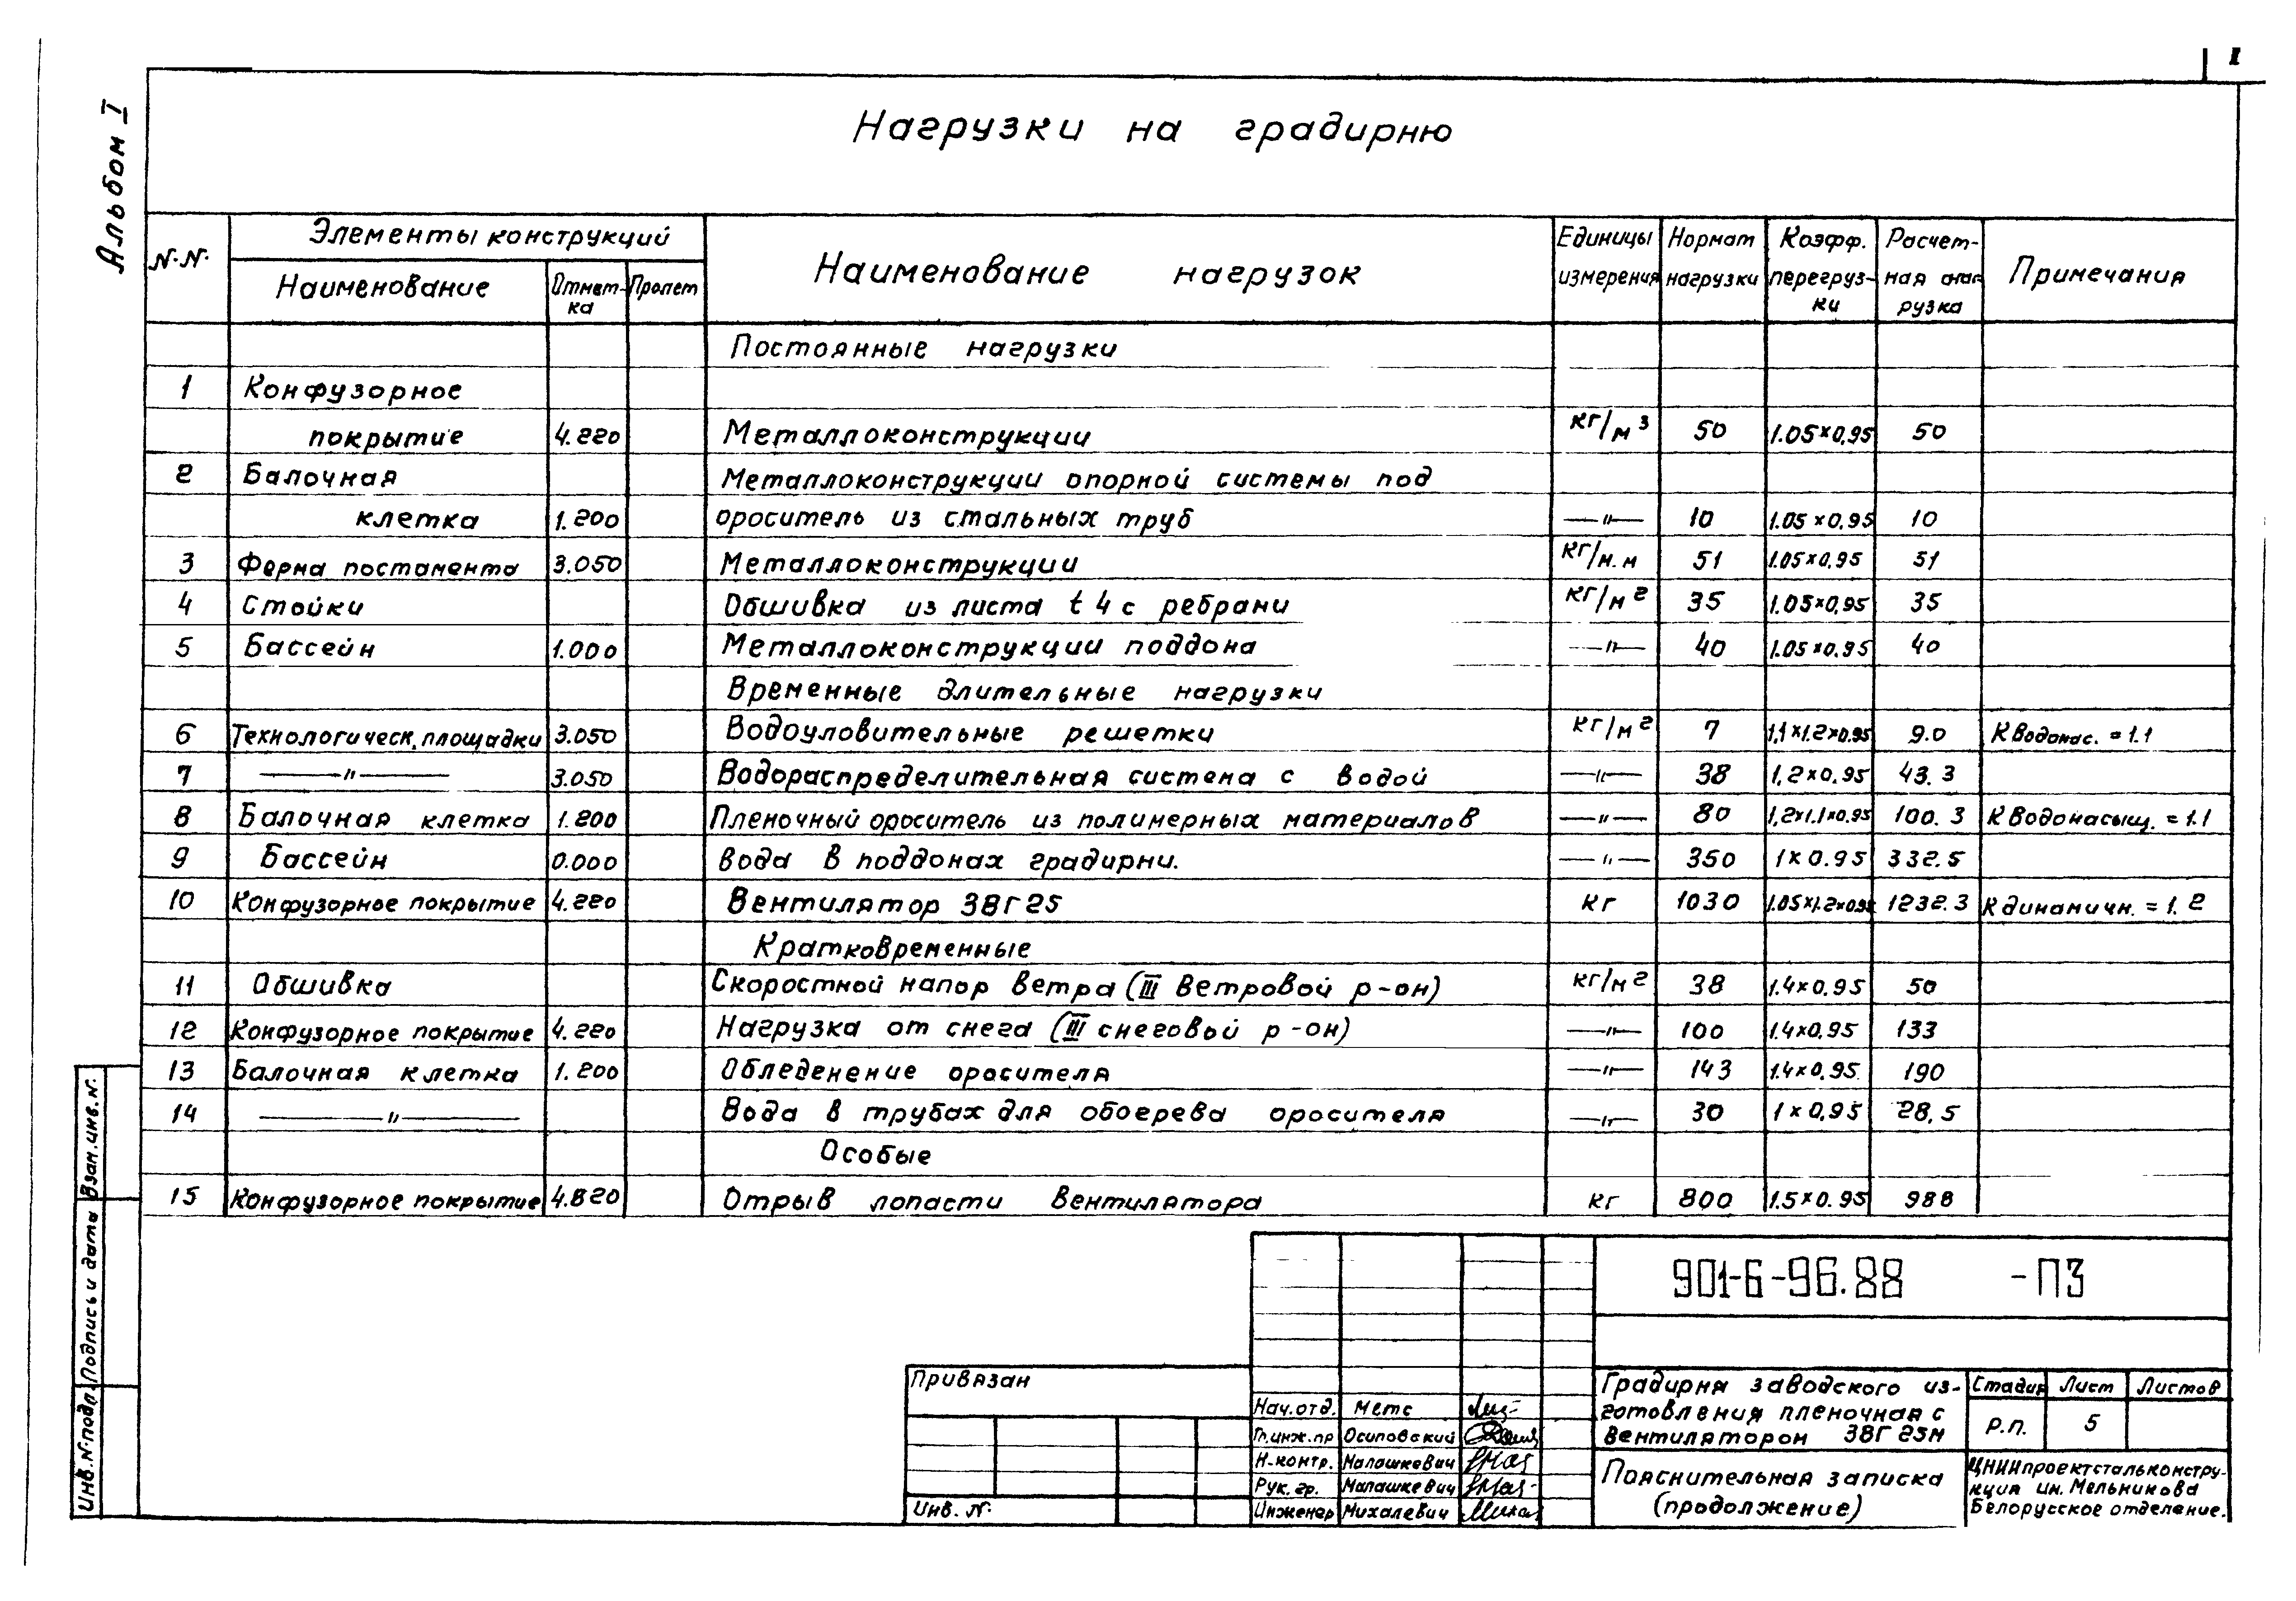 I
Альбом I
Нагрузки на градирню
N.N.
Элементы конструкций
Наименование
Отмет-
ка
Пролет
Наименование нагрузок
Единицы
измерения
Нормат
нагрузки
Коэфф.
перегруз-
ки
Расчет-
ная наг
рузка
Примечания
Постоянные нагрузки
1 Конфузорное
покрытие 4.220 Металлоконструкции кг/м³ 50 1.05×0,95 50
2 Балочная Металлоконструкции опорной системы под
клетка 1.200 ороситель из стальных труб —"— 10 1.05×0,95 10
3 Ферма постамента 3.050 Металлоконструкции кг/м.м 51 1.05×0,95 51
4 Стойки Обшивка из листа t4 с ребрами кг/м² 35 1.05×0,95 35
5 Бассейн 1.000 Металлоконструкции поддона —"— 40 1.05×0.95 40
Временные длительные нагрузки
6 Технологическ. площадки 3.050 Водоуловительные решетки кг/м² 7 1,1×1.2×0.95 9.0 К водонас. = 1.1
7 —"— 3.050 Водораспределительная система с водой —"— 38 1,2×0.95 43.3
8 Балочная клетка 1.200 Пленочный ороситель из полимерных материалов —"— 80 1,2×1.1×0.95 100.3 К водонасыщ. = 1.1
9 Бассейн 0.000 вода в поддонах градирни. —"— 350 1×0.95 332.5
10 Конфузорное покрытие 4.220 Вентилятор 3ВГ25 кг 1030 1.05×1.2×0.95 1232.3 К динамичн. = 1.2
Кратковременные
11 Обшивка Скоростной напор ветра (III ветровой р-он) кг/м² 38 1.4×0.95 50
12 Конфузорное покрытие 4.220 Нагрузка от снега (III снеговой р-он) —"— 100 1.4×0,95 133
13 Балочная клетка 1.200 Обледенение оросителя —"— 143 1.4×0,95 190
14 —"— Вода в трубах для обогрева оросителя —"— 30 1×0,95 28,5
Особые
15 Конфузорное покрытие 4.820 Отрыв лопасти вентилятора кг 800 1.5×0.95 988
Взам.инв.N.
Подпись и дата
Инв.N.подл.
901-6-96.88 -ПЗ
Привязан
Инв. N.
Нач.отд. Метс
Гл.инж.пр Осиповский
Н-контр. Малашкевич
Рук. гр. Малашкевич
Инженер Михалевич
Градирня заводского из-
готовления пленочная с
вентилятором 3ВГ 25М
Стадия Лист Листов
Р.П. 5
Пояснительная записка
(продолжение)
ЦНИИпроектстальконстру-
кция им. Мельникова
Белорусское отделение.